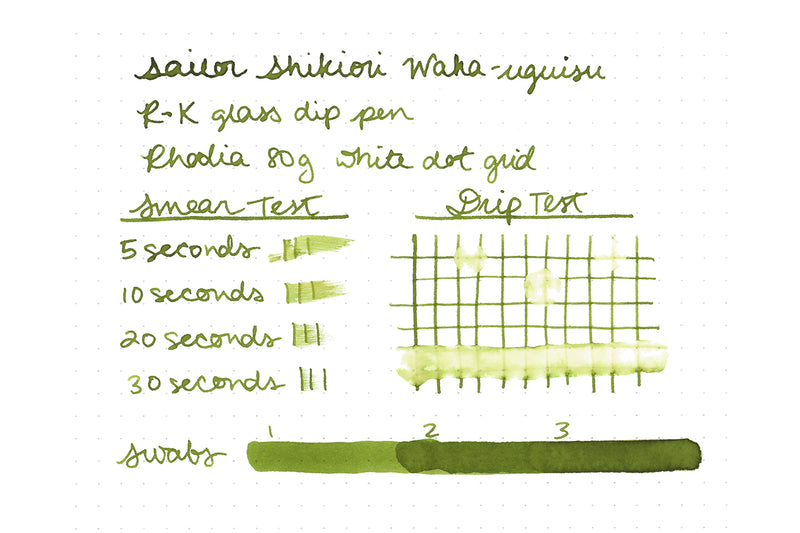 Sailor Shikiori Waka-uguisu
R-K glass dip pen
Rhodia 80g white dot grid
Smear Test
Drip Test
5 seconds
10 seconds
20 seconds
30 seconds
1 2 3
swabs